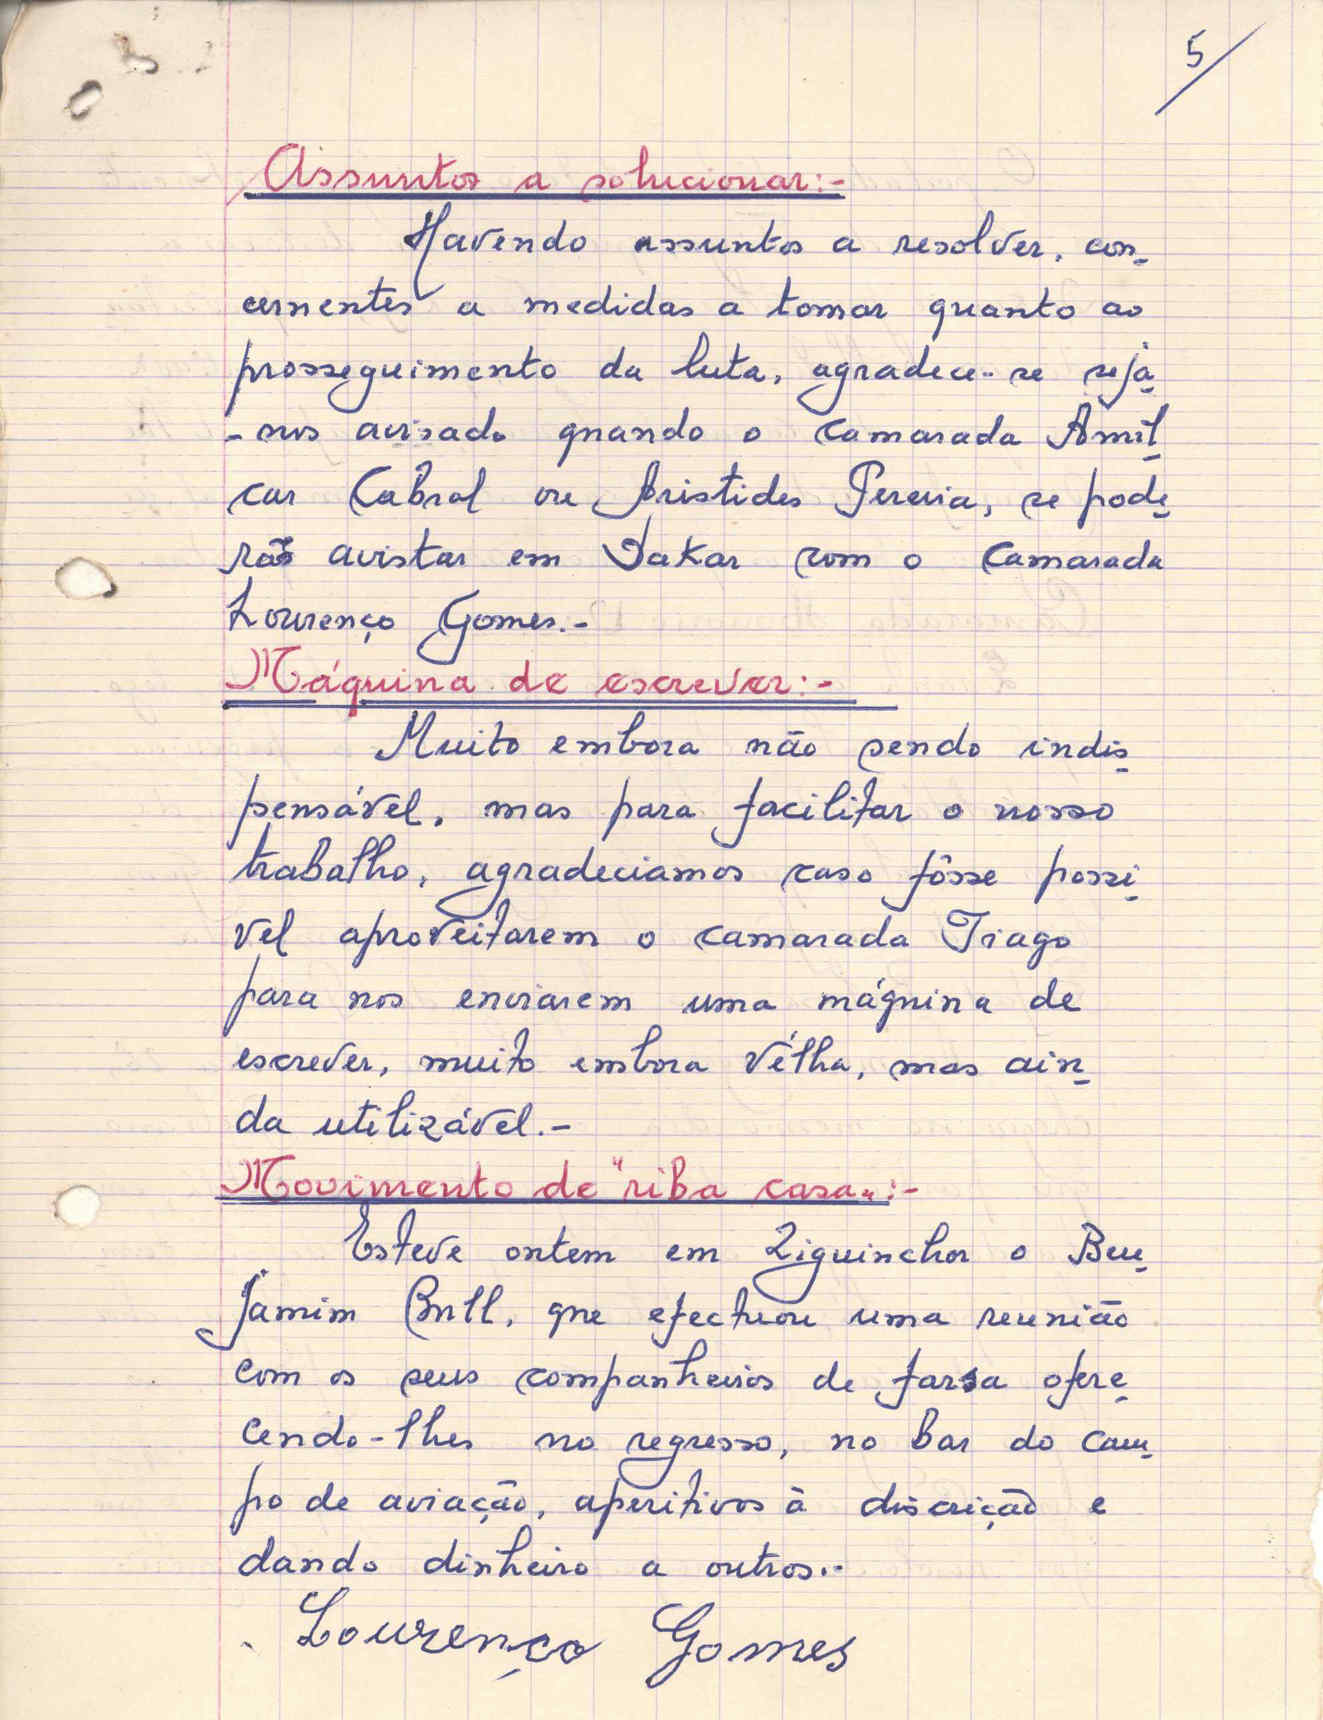 5
Assuntos a solucionar:-
Havendo assuntos a resolver, con-
cernentes a medidas a tomar quanto ao
prosseguimento da luta, agradece-se seja-
-nos avisado quando o camarada Amíl-
car Cabral ou Aristides Pereira, se pode-
rão avistar em Dakar com o camarada
Lourenço Gomes.-
Máquina de escrever:-
Muito embora não sendo indis-
pensável, mas para facilitar o nosso
trabalho, agradeciamos caso fôsse possi-
vel aproveitarem o camarada Tiago
para nos enviarem uma máquina de
escrever, muito embora vélha, mas ain-
da utilizável.-
Movimento de "riba casa":-
Esteve ontem em Ziguinchor o Ben-
jamim Bull, que efectuou uma reunião
com os seus companheiros de farsa ofere-
cendo-lhes no regresso, no bar do cam-
po de aviação, aperitivos à discrição e
dando dinheiro a outros.-
Lourenço Gomes